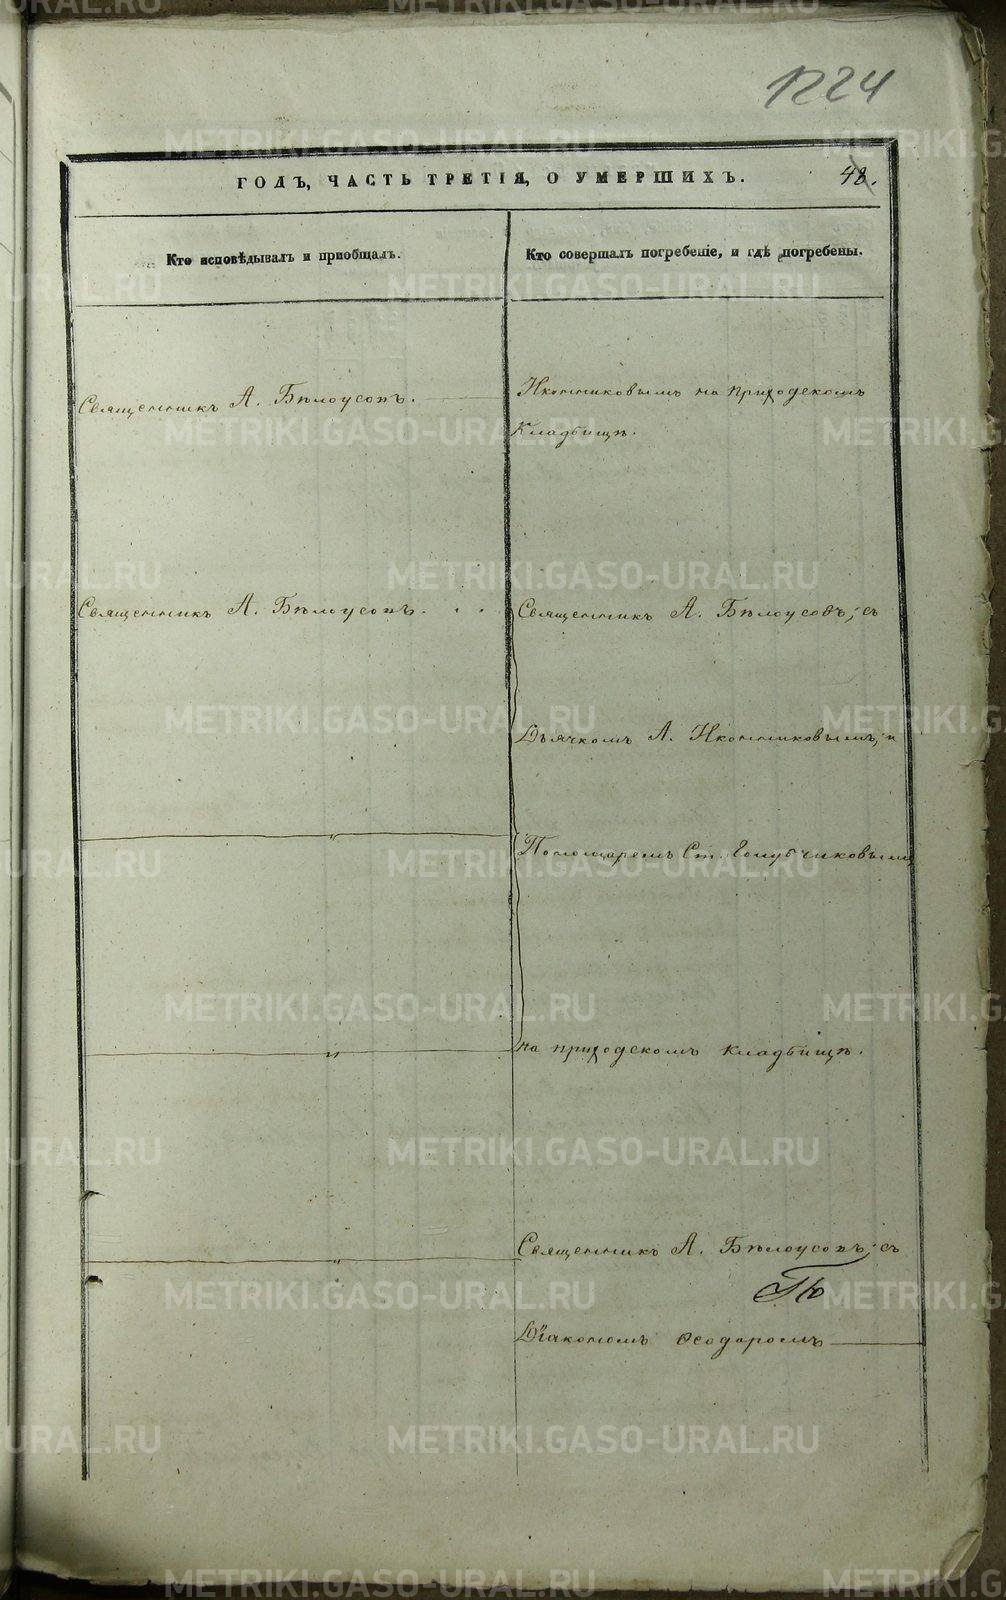 1224
ГОДЪ, ЧАСТЬ ТРЕТІЯ, О УМЕРШИХЪ. 48.
Кто исповѣдывалъ и пріобщалъ.
Кто совершалъ погребеніе, и гдѣ погребены.
Священникъ А. Бѣлоусовъ.
Иконниковымъ на приходскомъ
Кладбищѣ.
Священникъ А. Бѣлоусовъ.
Священникъ А. Бѣлоусовъ, съ
Дьячкомъ А. Иконниковымъ, и
Пономаремъ Ст. Голубчиковымъ
на приходскомъ кладбищѣ.
Священникъ А. Бѣлоусовъ, съ
Діакономъ Ѳеодоромъ
METRIKI.GASO-URAL.RU